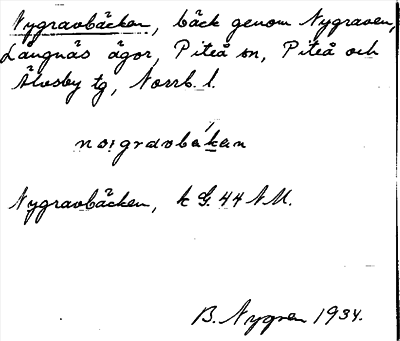 Nygravbäcken, bäck genom Nygraven,
Långnäs ägor, Piteå sn, Piteå och
Älvsby tg, Norrb. l.
Nygravbäcken, k G. 44 NM.
B. Nygren 1934.